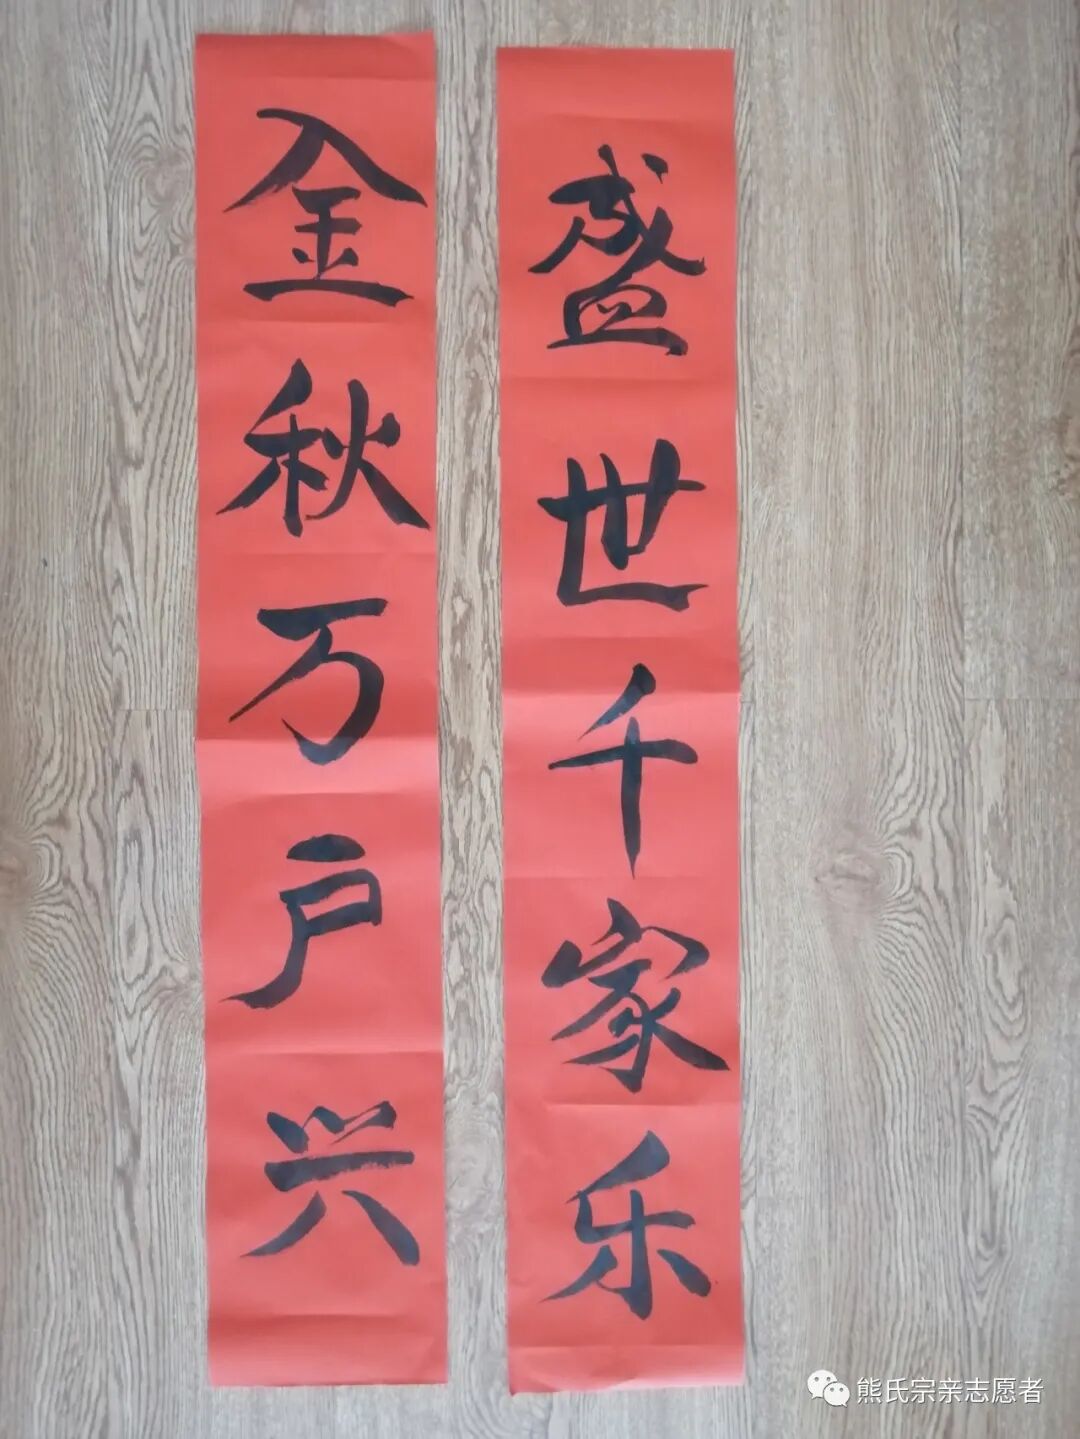 盛世千家乐
金秋万户兴
熊氏宗亲志愿者